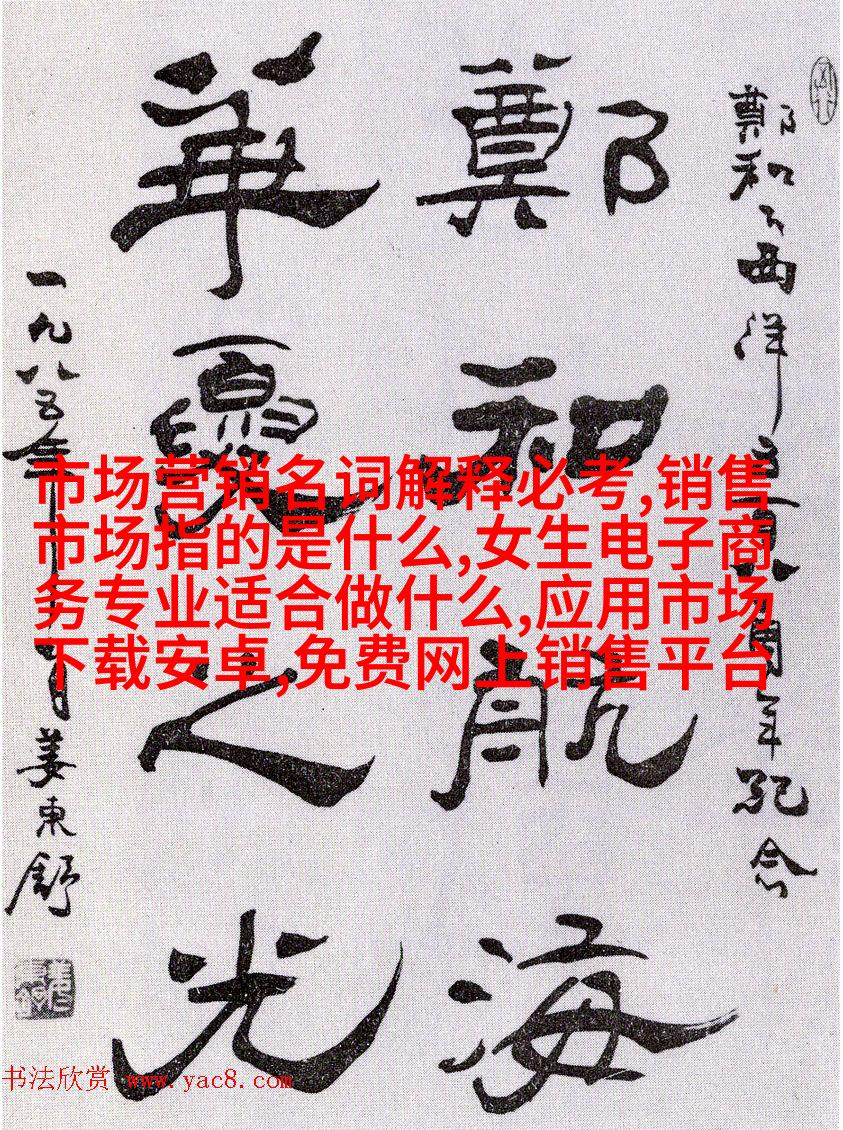 鄭和下西洋五百八十周年紀念
鄭和航海
華夏之光
一九八五年 月姜東舒
市场营销名词解释必考,销售
市场指的是什么,女生电子商
务专业适合做什么,应用市场
下载安卓,免费网上销售平台
书法欣赏 www.yac8.com